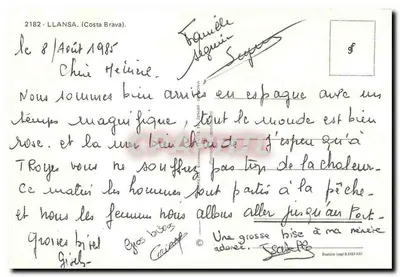 2182 - LLANSA. (Costa Brava).
Famille
Seguin
le 8/Août 1985
Chère Mémère.
Nous sommes bien arrivés en espagne avec un
temps magnifique, tout le monde est bien
rose. et la mer bien chaude. J'espère qu'à
TROYES vous ne souffrez pas trop de la chaleur.
Ce matin les hommes sont partis à la pêche.
et nous les femmes nous allons aller jusqu'au Port.
Grosses bises
Gros bisous
Une grosse bise à ma mémère
adorée.